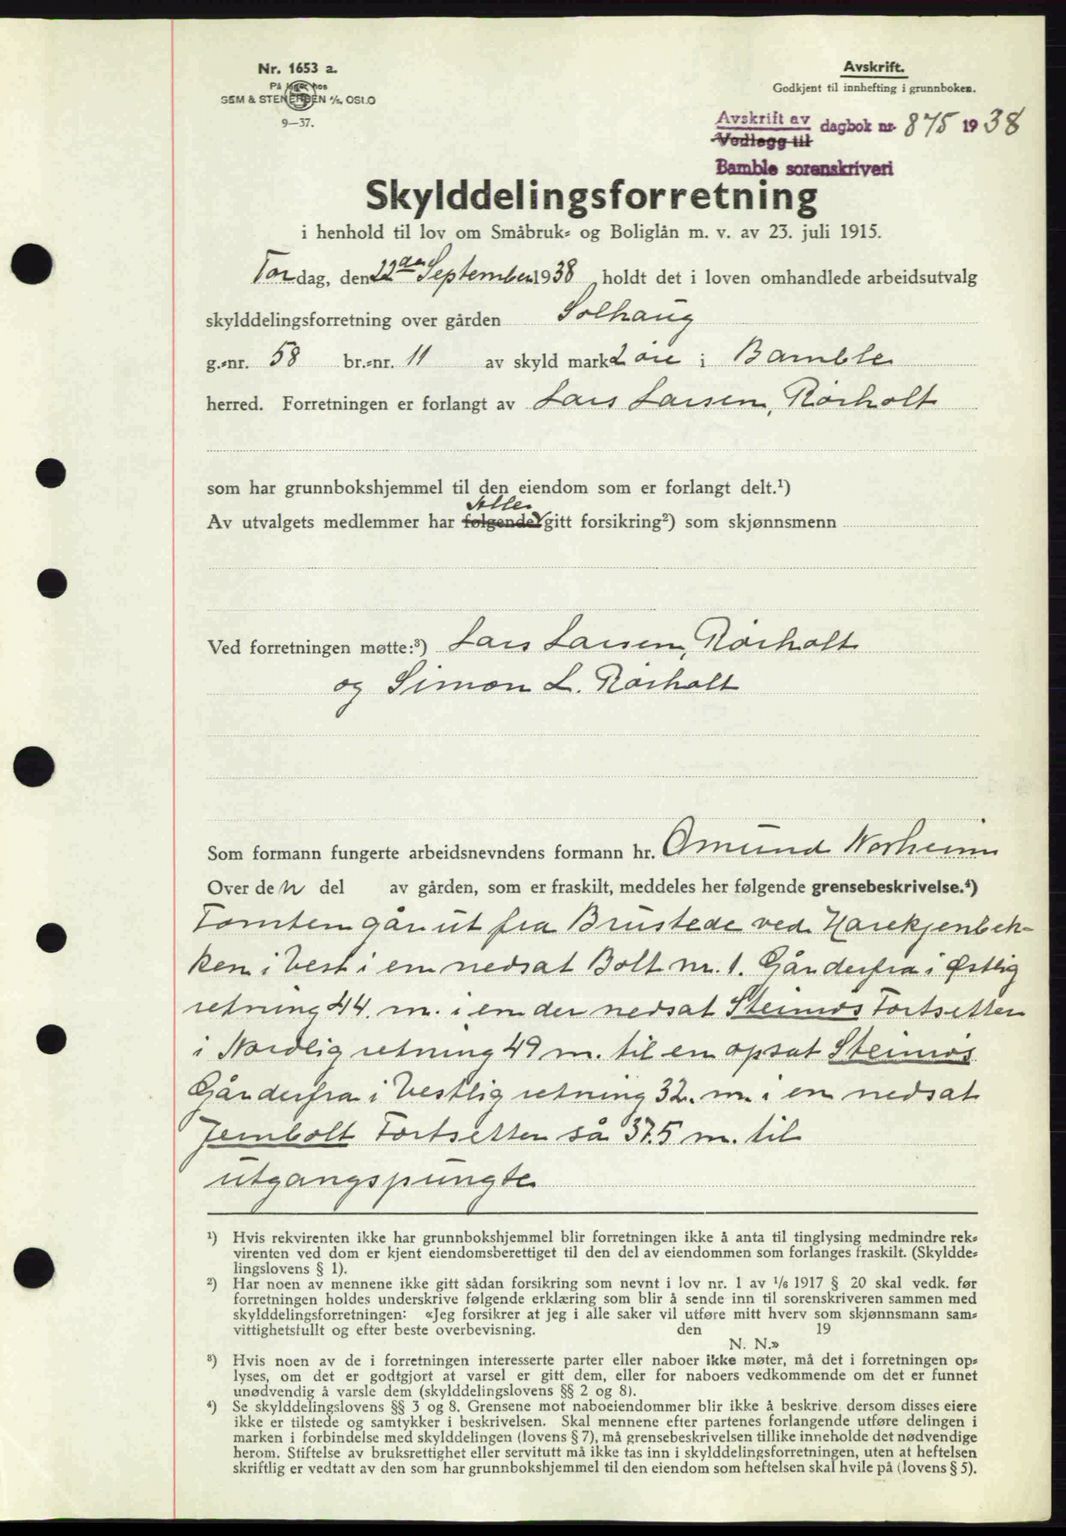 Nr. 1653 a.
På lager hos
SEM & STENERSEN A/S, OSLO
9—37.
Avskrift.
Godkjent til innhefting i grunnboken.
Avskrift av
Vedlegg til
dagbok nr. 875 1938
Bamble sorenskriveri
Skylddelingsforretning
i henhold til lov om Småbruk- og Boliglån m. v. av 23. juli 1915.
Tordag, den 22de September 1938 holdt det i loven omhandlede arbeidsutvalg
skylddelingsforretning over gården Solhaug
g.-nr. 58 br.-nr. 11 av skyld mark 2 øre i Bamble
herred. Forretningen er forlangt av Lars Larsen, Rørholt
som har grunnbokshjemmel til den eiendom som er forlangt delt.¹)
Alle
Av utvalgets medlemmer har følgende gitt forsikring²) som skjønnsmenn
Ved forretningen møtte:³) Lars Larsen, Rørholt
og Simon L. Rørholt
Som formann fungerte arbeidsnevndens formann hr. Omund Norheim
Over de n del av gården, som er fraskilt, meddeles her følgende grensebeskrivelse.⁴)
Tomten går ut fra Brustede ved Harekjenbek-
ken i Vest i em nedsat Bolt nr. 1. Går derfra i Østlig
retning 44. m. i en der nedsat Steinrøs Fortsetter
i Nordlig retning 49 m. til en opsat Steinrøs
Går derfra i Vestlig retning 32. m. i en nedsat
Jernbolt Fortsetter så 37.5 m. til
utgangspungte
¹) Hvis rekvirenten ikke har grunnbokshjemmel blir forretningen ikke å anta til tinglysing medmindre rek-
virenten ved dom er kjent eiendomsberettiget til den del av eiendommen som forlanges fraskilt. (Skyldde-
lingslovens § 1).
²) Har noen av mennene ikke gitt sådan forsikring som nevnt i lov nr. 1 av 1/6 1917 § 20 skal vedk. før
forretningen holdes underskrive følgende erklæring som blir å sende inn til sorenskriveren sammen med
skylddelingsforretningen: «Jeg forsikrer at jeg i alle saker vil utføre mitt hverv som skjønnsmann sam-
vittighetsfullt og efter beste overbevisning. den 19
N. N.»
³) Hvis noen av de i forretningen interesserte parter eller naboer ikke møter, må det i forretningen op-
lyses, om det er godtgjort at varsel er gitt dem, eller for naboers vedkommende om det er funnet
unødvendig å varsle dem (skylddelingslovens §§ 2 og 8).
⁴) Se skylddelingslovens §§ 3 og 8. Grensene mot naboeiendommer blir ikke å beskrive dersom disses eiere
ikke er tilstede og samtykker i beskrivelsen. Skal mennene efter partenes forlangende utføre delingen i
marken i forbindelse med skylddelingen (lovens § 7), må grensebeskrivelsen tillike inneholde det nødvendige
herom. Stiftelse av bruksrettighet eller servitutt må ikke tas inn i skylddelingsforretningen, uten at heftelsen
skriftlig er vedtatt av den som har grunnbokshjemmel til den eiendom som heftelsen skal hvile på (lovens § 5).